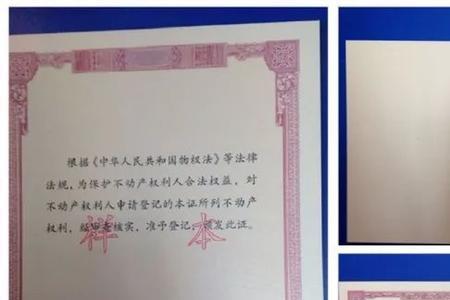 根据《中华人民共和国物权法》等法律
法规，为保护不动产权利人合法权益，对
不动产权利人申请登记的本证所列不动产
权利，经审查核实，准予登记，颁发此证。
样 本